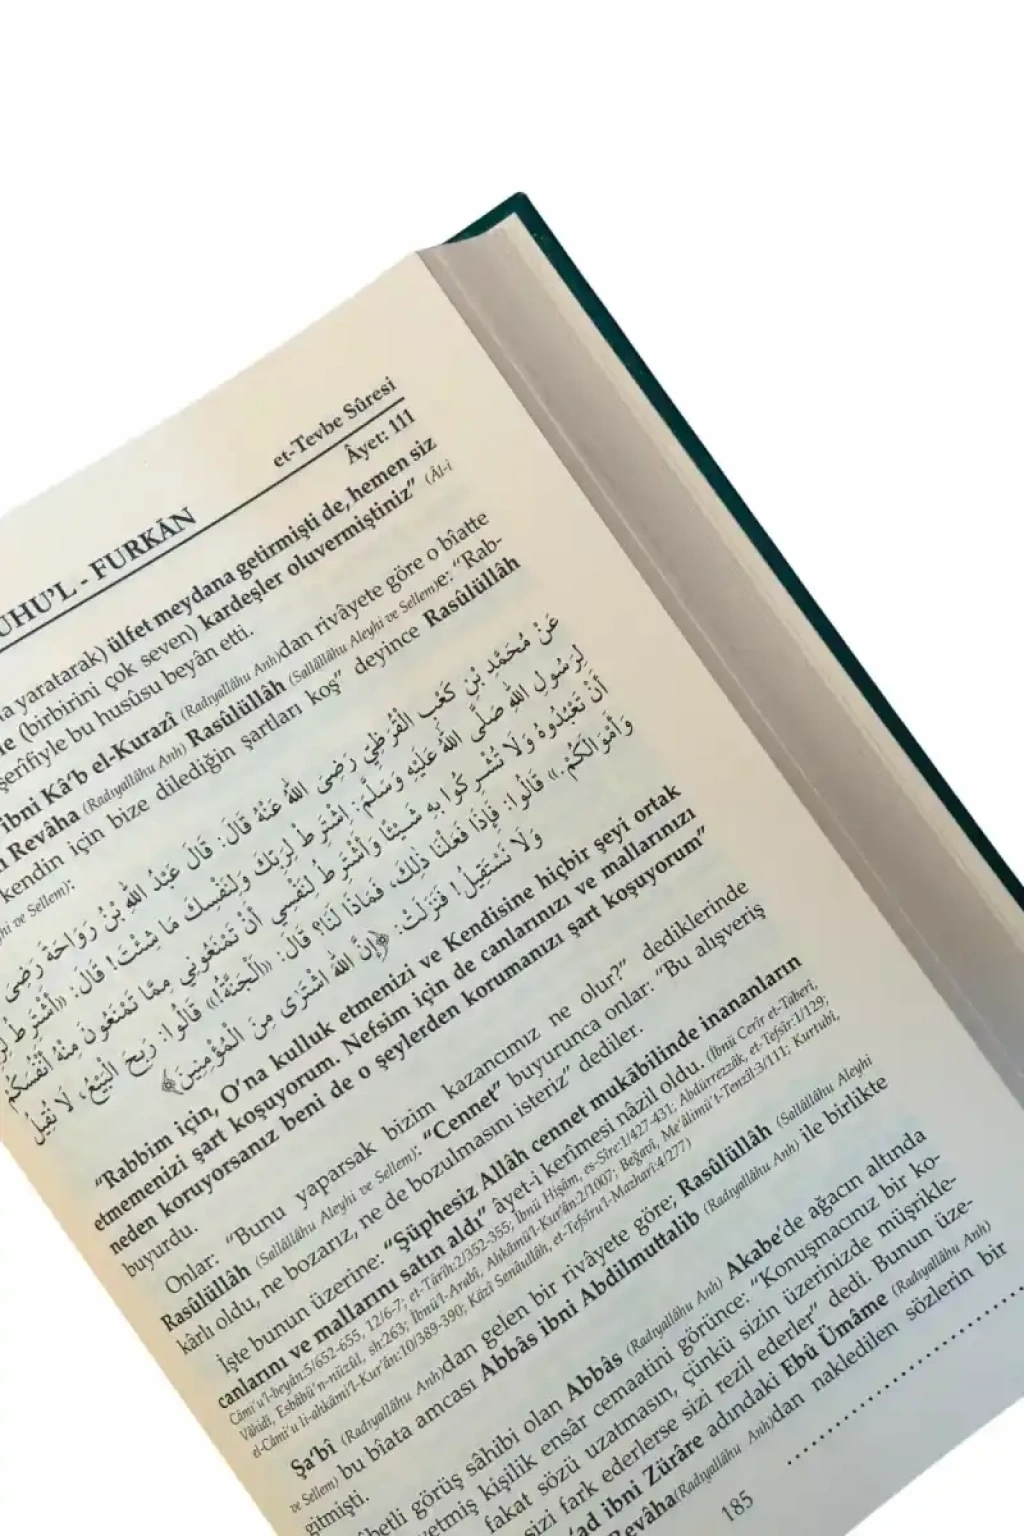 UHU'L - FURKÂN
et-Tevbe Sûresi
Âyet: 111
yaratarak) ülfet meydana getirmişti de, hemen siz
(birbirini çok seven) kardeşler oluvermiştiniz" (Âl-i
şerîfiyle bu husûsu beyân etti.
ibni Kâ'b el-Kurazî (Radıyallâhu Anh)dan rivâyete göre o bîatte
Revâha (Radıyallâhu Anh) Rasûlüllâh (Sallâllâhu Aleyhi ve Sellem)e: "Rab-
kendin için bize dilediğin şartları koş" deyince Rasûlüllâh
ve Sellem):
عَنْ مُحَمَّدِ بْنِ كَعْبٍ الْقُرَظِيِّ رَضِىَ اللّٰهُ عَنْهُ قَالَ: قَالَ عَبْدُ اللّٰهِ بْنُ رَوَاحَةَ رَضِىَ
لِرَسُولِ اللّٰهِ صَلَّى اللّٰهُ عَلَيْهِ وَسَلَّمَ: اِشْتَرِطْ لِرَبِّكَ وَلِنَفْسِكَ مَا شِئْتَ! قَالَ: «أَشْتَرِطُ
أَنْ تَعْبُدُوهُ وَلَا تُشْرِكُوا بِهِ شَيْئًا وَأَشْتَرِطُ لِنَفْسِي أَنْ تَمْنَعُونِي مِمَّا تَمْنَعُونَ مِنْهُ أَنْفُسَكُمْ
وَأَمْوَالَكُمْ.» قَالُوا: فَإِذَا فَعَلْنَا ذٰلِكَ، فَمَاذَا لَنَا؟ قَالَ: «اَلْجَنَّةُ!» قَالُوا: رَبِحَ الْبَيْعُ، لَا نُقِيلُ
وَلَا نَسْتَقِيلُ! فَنَزَلَتْ: ﴿إِنَّ اللّٰهَ اشْتَرَى مِنَ الْمُؤْمِنِينَ﴾
"Rabbim için, O'na kulluk etmenizi ve Kendisine hiçbir şeyi ortak
etmemenizi şart koşuyorum. Nefsim için de canlarınızı ve mallarınızı
neden koruyorsanız beni de o şeylerden korumanızı şart koşuyorum"
buyurdu.
Onlar: "Bunu yaparsak bizim kazancımız ne olur?" dediklerinde
Rasûlüllâh (Sallâllâhu Aleyhi ve Sellem): "Cennet" buyurunca onlar: "Bu alışveriş
kârlı oldu, ne bozarız, ne de bozulmasını isteriz" dediler.
İşte bunun üzerine: "Şüphesiz Allâh cennet mukâbilinde inananların
canlarını ve mallarını satın aldı" âyet-i kerîmesi nâzil oldu. (İbnü Cerîr et-Taberî,
Câmi'u'l-beyân:5/652-655, 12/6-7; et-Târîh:2/352-355; İbnü Hişâm, es-Sîre:1/427-431; Abdürrezzâk, et-Tefsîr:1/129;
Vâhidî, Esbâbü'n-nüzûl, sh:263; İbnü'l-Arabî, Ahkâmü'l-Kur'ân:2/1007; Beğavî, Me'âlimü't-Tenzîl:3/111; Kurtubî,
el-Câmi'u li-ahkâmi'l-Kur'ân:10/389-390; Kâzî Senâullâh, et-Tefsîru'l-Mazharî:4/277)
Şa'bî (Radıyallâhu Anh)dan gelen bir rivâyete göre; Rasûlüllâh (Sallâllâhu Aleyhi
ve Sellem) bu bîata amcası Abbâs ibni Abdilmuttalib (Radıyallâhu Anh) ile birlikte
gitmişti.
görüş sâhibi olan Abbâs (Radıyallâhu Anh) Akabe'de ağacın altında
kişilik ensâr cemaatini görünce: "Konuşmacınız bir ko-
fakat sözü uzatmasın, çünkü sizin üzerinizde müşrikle-
sizi fark ederlerse sizi rezil ederler" dedi. Bunun üze-
ibni Zürâre adındaki Ebû Ümâme (Radıyallâhu Anh)
Revâha(Radıyallâhu Anh)dan nakledilen sözlerin bir
185